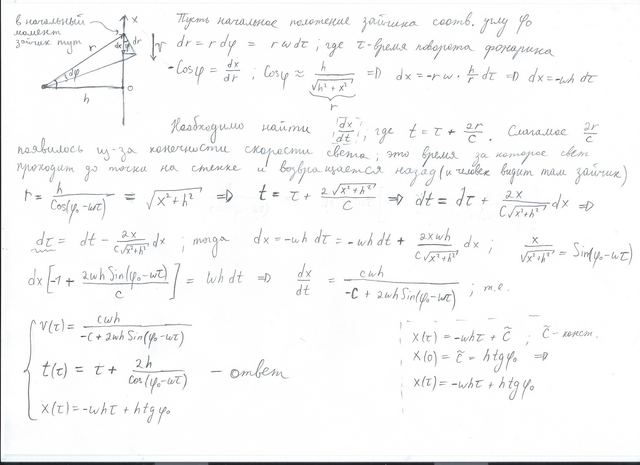 в начальный
момент
зайчик тут
x
r
dx
dr
φ
dφ
v
h
0
Пусть начальное положение зайчика соотв. углу φ₀
dr = r dφ = r w dτ ; где τ-время поворота фонарика
-Cosφ = dx/dr ; Cosφ ≈ h/√(h²+x²) ⇒ dx = -r w · h/r dτ ⇒ dx = -wh dτ
r
Необходимо найти dx/dt , где t = τ + 2r/c . Слагаемое 2r/c
появилось из-за конечности скорости света, это время за которое свет
проходит до точки на стенке и возвращается назад (и человек видит там зайчик)
r = h/Cos(φ₀-wτ) = √(x²+h²) ⇒ t = τ + 2√(x²+h²)/C ⇒ dt = dτ + 2x/(C√(x²+h²)) dx ⇒
dτ = dt - 2x/(C√(x²+h²)) dx ; тогда dx = -wh dτ = -wh dt + 2xwh/(C√(x²+h²)) dx ; x/√(x²+h²) = Sin(φ₀-wτ)
dx [-1 + 2wh Sin(φ₀-wτ)/C] = wh dt ⇒ dx/dt = cwh/(-C + 2wh Sin(φ₀-wτ)) ; т.е.
V(τ) = cwh/(-C + 2wh Sin(φ₀-wτ))
t(τ) = τ + 2h/cos(φ₀-wτ) - ответ
X(τ) = -whτ + h tg φ₀
X(τ) = -whτ + C̃ ; C̃-конст.
X(0) = C̃ = h tg φ₀ ⇒
X(τ) = -whτ + h tg φ₀